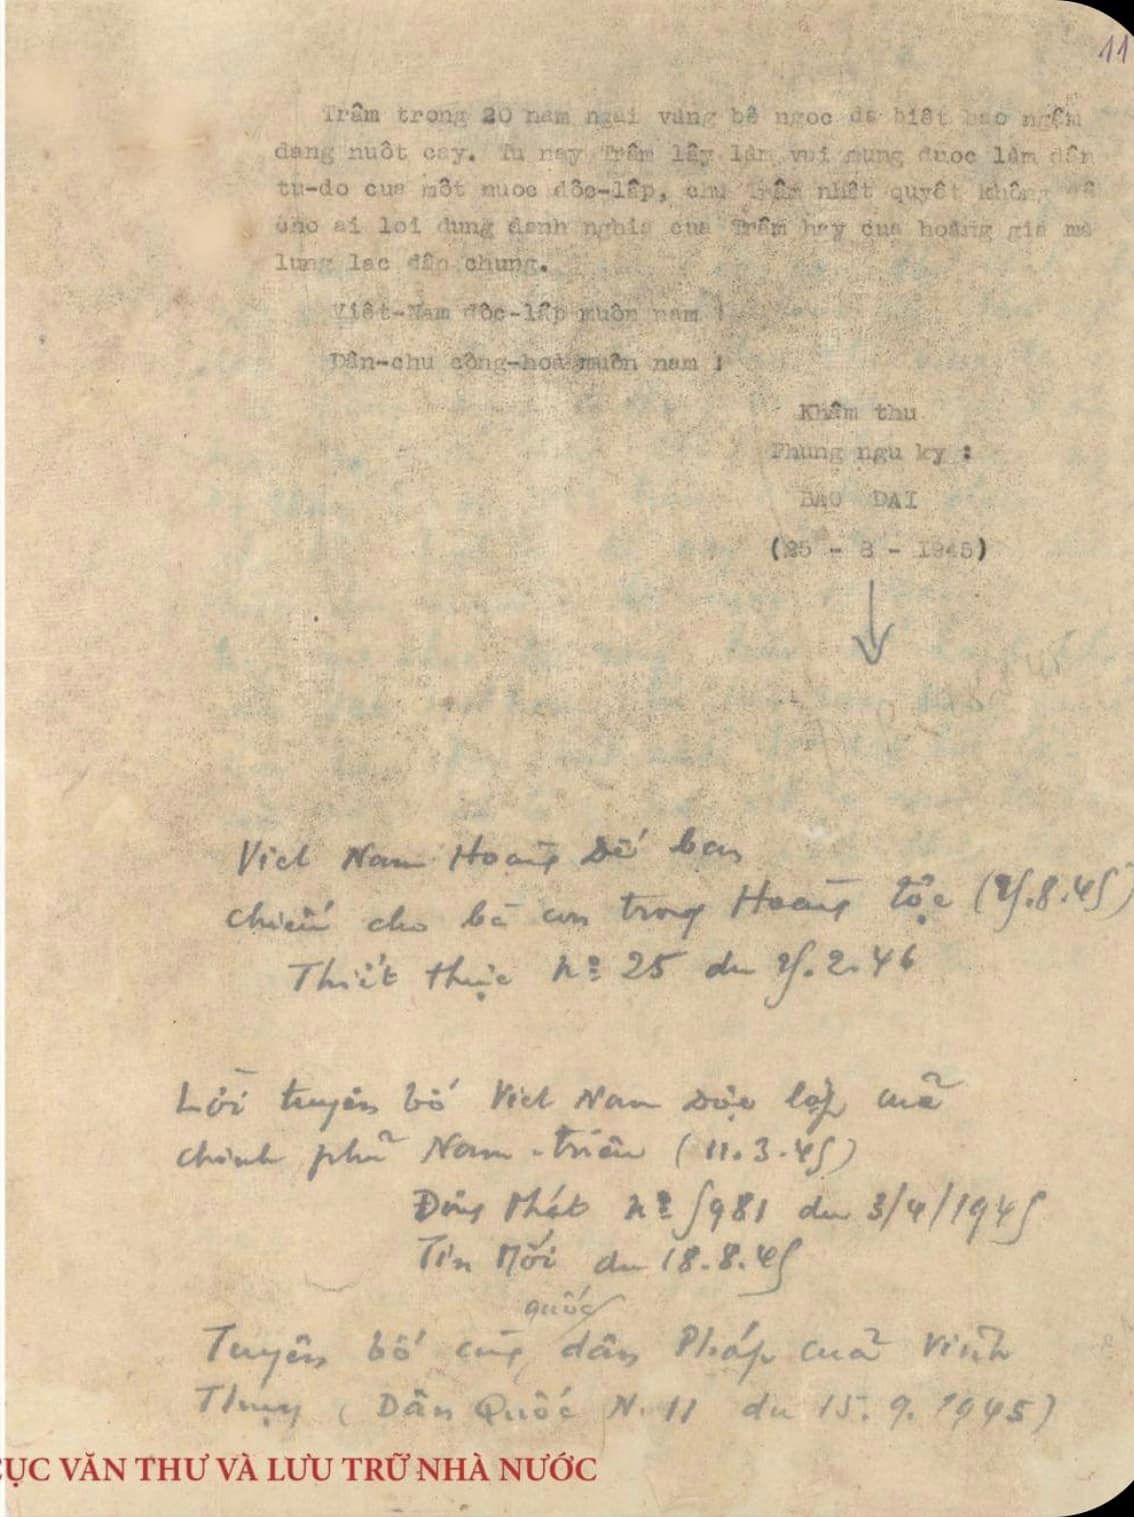 11
Trâm trong 20 nam ngai vang bê ngoc da biêt bao ngậm
dang nuôt cay. Tu nay Trâm lây làm vui mung duoc làm dân
tu-do cua môt nuoc dôc-lâp, chu Trâm nhât quyêt không đê
cho ai loi dung danh nghia cua Trâm hay cua hoàng gia mà
lung lac dân chung.
Viêt-Nam dôc-lâp muôn nam !
Dân-chu công-hoà muôn nam !
Khâm thu
Phung ngu ky :
BAO DAI
(25 - 8 - 1945)
Việt Nam Hoàng Đế ban
chiếu cho bà con trong Hoàng tộc (25.8.45)
Thiết thực nº 25 du 25.2.46
Lời tuyên bố Việt Nam Độc lập của
chính phủ Nam-triều (11.3.45)
Đông Phát nº 5981 du 3/4/1945
Tin Mới du 18.8.45
quốc
Tuyên bố cùng dân Pháp của Vĩnh
Thụy (Dân Quốc N. 11 du 15.9.1945)
CỤC VĂN THƯ VÀ LƯU TRỮ NHÀ NƯỚC